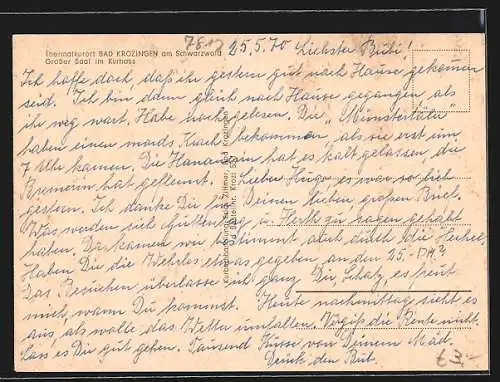 Thermalkurort BAD KROZINGEN am Schwarzwald
Großer Saal im Kurhaus
7812
25.5.70 Liebster Bubi!
Ich hoffe doch, daß ihr gestern gut nach Hause gekommen
seid. Ich bin dann gleich nach Hause gegangen als
ihr weg wart. Habe noch gelesen. Die "Münstertäla"
haben einen mords Krach bekommen, als sie erst um
7 Uhr kamen. Die hat es kalt gelassen, die
hat geflennt. Lieber Hugo, es war so lieb
gestern. Ich danke Dir für Deinen lieben großen Brief.
Was werden sich u. Herth zu sagen gehabt
haben. Da kamen wir bestimmt, auch durch die
Haben Dir die Wehrles etwas gegeben, an den 25.
Das Besuchen überlasse ich ganz Dir, Schatz, es freut
mich, wann Du kommst. Heute nachmittag sieht es
aus, als wolle das Wetter umfallen. Vergiß die Rente nicht.
Lass es Dir gut gehen. Tausend Küsse von Deinem Mädl.
Drück den Bub.
63,-